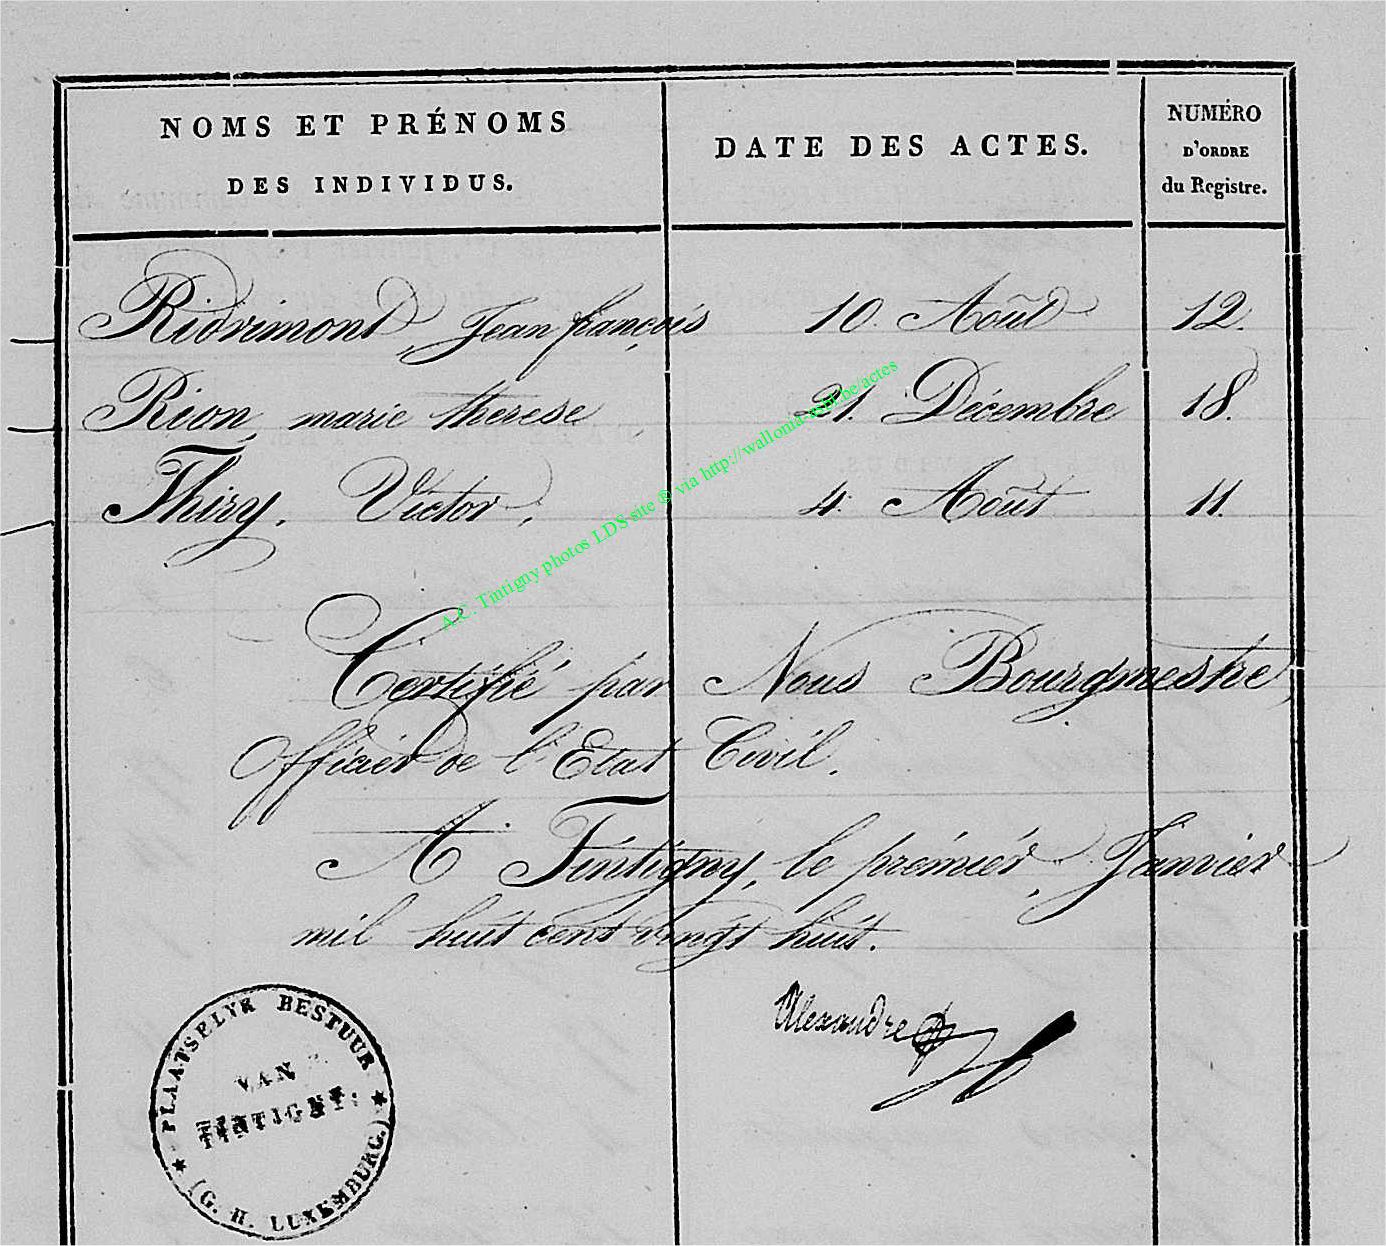 NOMS ET PRÉNOMS
DES INDIVIDUS.
DATE DES ACTES.
NUMÉRO
D'ORDRE
du Registre.
Ridrimont, Jean françois 10. Août 12.
Rion, marie therese 21. Décembre 18.
Thiry, Victor, 4. Août 11.
Certifié par Nous Bourgmestre,
Officier de l'Etat Civil.
A Tintigny, le premier, Janvier
mil huit cent vingt huit.
Alexandre
PLAATSELYK BESTUUR
VAN
TINTIGNY.
(G. H. LUXEMBURG.)
A.C. Tintigny photos LDS site © via http://wallonia-asbl.be/actes